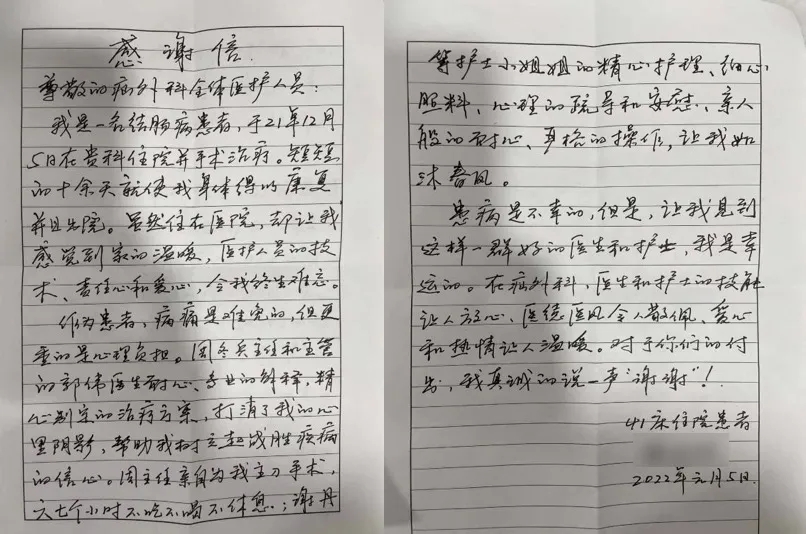 感谢信
尊敬的痛外科全体医护人员:
我是一名结肠病患者,于21年12月
5日在贵科住院并手术治疗。短短
的十余天就使我身体得以康复
并且出院。虽然住在医院,却让我
感觉到家的温暖,医护人员的技
术、责任心和爱心,令我终生难忘。
作为患者,病痛是难免的,但更
重的是心理负担。周冬兵主任和主管
的郭伟医生耐心、专业的解释,精
心制定的治疗方案,打消了我的心
里阴影,帮助我树立起战胜疾病
的信心。周主任亲自为我主刀手术,
六七个小时不吃不喝不休息.;谢丹
等护士小姐姐的精心护理、细心
照料、心理的疏导和安慰、亲人
般的耐心、严格的操作,让我如
沐春风。
患病是不幸的,但是,让我见到
这样一群好的医生和护士,我是幸
运的。在痛外科,医生和护士的技能
让人放心、医德医风令人敬佩、爱心
和热情让人温暖。对于你们的付
出,我真诚的说一声“谢谢”!
41床住院患者
2022年元月5日.